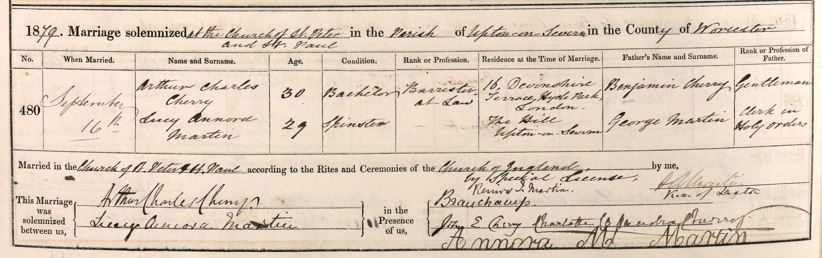 1879. Marriage solemnized at the Church of St. Peter and St. Paul in the Parish of Upton-on-Severn in the County of Worcester
No. When Married. Name and Surname. Age. Condition. Rank or Profession. Residence at the Time of Marriage. Father's Name and Surname. Rank or Profession of Father.
480 September 16th
Arthur Charles Cherry 30 Bachelor Barrister at Law 16, Devonshire Terrace, Hyde Park, London. Benjamin Cherry Gentleman
Lucy Annora Martin 29 Spinster — The Hill Upton-on-Severn George Martin Clerk in Holy Orders
Married in the Church of St. Peter & St. Paul according to the Rites and Ceremonies of the Church of England, by Special License, by me,
This Marriage was solemnized between us, Arthur Charles Cherry
Lucy Annora Martin
in the Presence of us,
Martin.
Beauchamp.
John E. Cherry Charlotte
Annora M. Martin